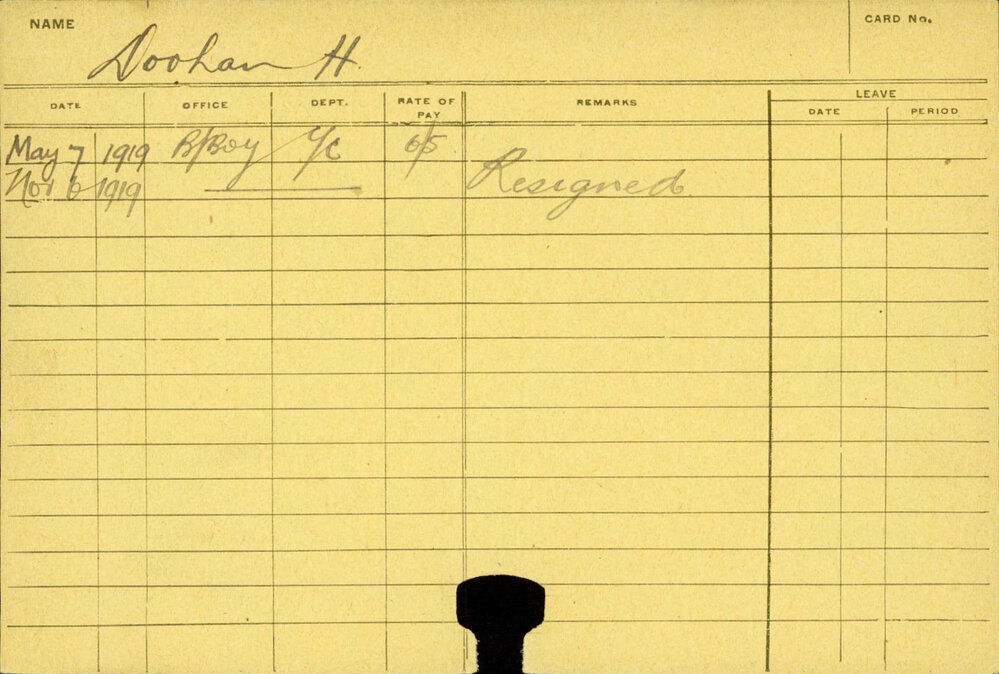 NAME
CARD No.
Doohan H.
DATE OFFICE DEPT. RATE OF PAY REMARKS LEAVE
DATE PERIOD
May 7 1919 B/Boy Y/C 6/5
Nov 6 1919 Resigned.